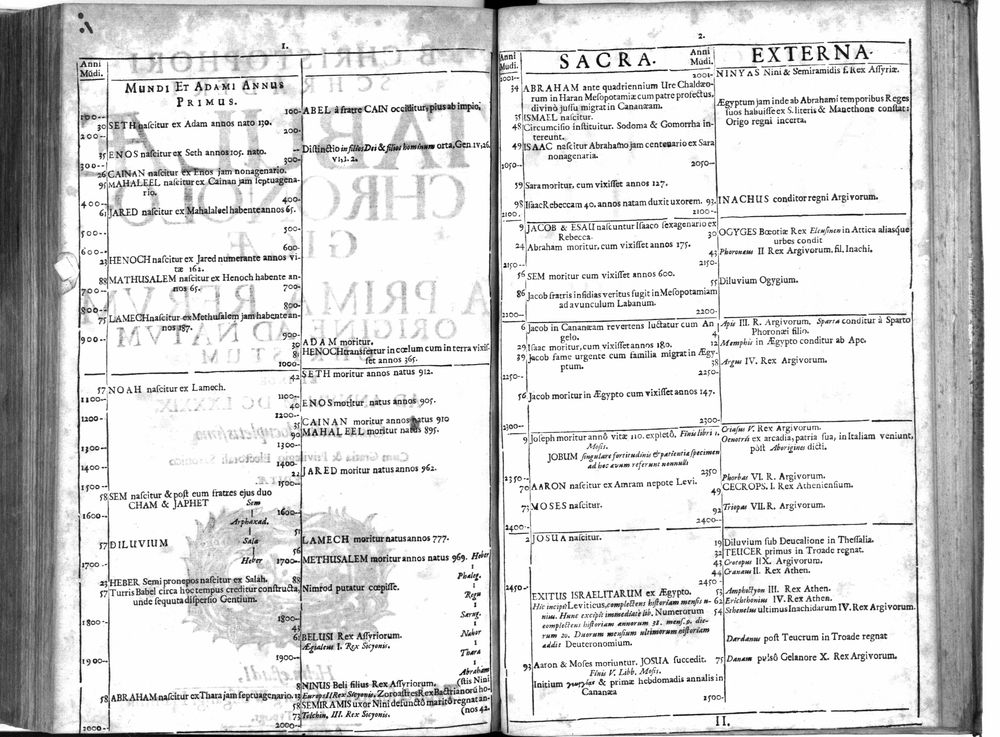 1.
Anni
Mũdi.
MUNDI ET ADAMI ANNUS
PRIMUS.
100--
30 SETH naſcitur ex Adam annos nato 130.
200--
35 ENOS naſcitur ex Seth annos 105. nato.
300--
26 CAINAN naſcitur ex Enos jam nonagenario.
95 MAHALEEL naſcitur ex Cainan jam ſeptuagena-
rio.
400--
61 JARED naſcitur ex Mahalaleel habente annos 65.
500--
600--
23 HENOCH naſcitur ex Jared numerante annos vi-
tæ 162.
88 MATHUSALEM naſcitur ex Henoch habente an-
nos 65.
700--
800--
75 LAMECH naſcitur ex Methuſalem jam habente an-
nos 187.
900--
57 NOAH naſcitur ex Lamech.
1100--
1200--
1300--
1400--
1500--
58 SEM naſcitur & poſt eum fratres ejus duo
CHAM & JAPHET
Sem
1600--
Arphaxad.
57 DILUVIUM
Sala
Heber
1700--
23 HEBER Semi pronepos naſcitur ex Salah.
57 Turris Babel circa hoc tempus creditur conſtructa,
unde ſequuta diſperſio Gentium.
1800--
1900--
58 ABRAHAM naſcitur ex Thara jam ſeptuagenario.
2000--
100- ABEL à fratre CAIN occiditur, pius ab impio,
200--
-- Diſtinctio in filios Dei & filios hominum orta, Gen IV, 26.
300-- VI, 1. 2.
400--
500--
600--
700--
800--
900--
30 ADAM moritur.
81 HENOCH transfertur in cœlum cum in terra vixiſ-
ſet annos 365.
1000--
42 SETH moritur annos natus 912.
1100--
40 ENOS moritur natus annos 905.
1200--
35 CAINAN moritur annos natus 910
90 MAHALEEL moritur natus 895.
1300--
1400--
22 JARED moritur natus annos 962.
1500--
1600--
51 LAMECH moritur natus annos 777.
56 METHUSALEM moritur annos natus 969. Heber
1700--
Phaleg.
88 Nimrod putatur cœpiſſe.
Regu
1800--
Sarug.
43
61 BELUSI Rex Aſſyriorum.
Nahor
Ægialeus I. Rex Sicyonis.
Thara
1900--
Abraham
8 NINUS Beli filius Rex Aſſyriorum. (ſtis Nini
13 Europs II Rex Sicyonis, Zoroaſtres Rex Bactrianorũ ho-
58 SEMIRAMIS uxor Nini defunctõ maritô regnat an-
73 Telchin, III. Rex Sicyonis. (nos 42.
2000--
2.
Anni
Mũdi.
SACRA.
Anni
Mũdi.
EXTERNA.
2001--
34 ABRAHAM ante quadriennium Ure Chaldæo-
rum in Haran Meſopotamiæ cum patre profectus,
divinô juſſu migrat in Cananæam.
35 ISMAEL naſcitur.
48 Circumciſio inſtituitur. Sodoma & Gomorrha in-
tereunt.
49 ISAAC naſcitur Abrahamo jam centenario ex Sara
nonagenaria.
2050--
59 Sara moritur, cum vixiſſet annos 127.
98 Iſaac Rebeccam 40. annos natam duxit uxorem.
2100.
9 JACOB & ESAU naſcuntur Iſaaco ſexagenario ex
Rebecca.
24 Abraham moritur, cum vixiſſet annos 175.
2150--
56 SEM moritur cum vixiſſet annos 600.
86 Jacob fratris inſidias veritus fugit in Meſopotamiam
ad avunculum Labanum.
6 Jacob in Cananæam revertens luctatur cum An-
gelo.
29 Iſaac moritur, cum vixiſſet annos 180.
39 Jacob fame urgente cum familia migrat in Ægy-
ptum.
2250--
56 Jacob moritur in Ægypto cum vixiſſet annos 147.
2300--
9 Joſeph moritur annô vitæ 110. expletô, Finis libri 1.
Moſis.
JOBUM ſingulare fortitudinis & patientiæ ſpecimen
ad hoc ævum referunt nonnulli
2350--
70 AARON naſcitur ex Amram nepote Levi.
73 MOSES naſcitur.
2400--
2 JOSUA naſcitur.
2450--
EXITUS ISRAELITARUM ex Ægypto.
Hic incipit Leviticus, complectens hiſtoriam menſis u-
nius. Hunc excipit immediatè lib. Numerorum
complectens hiſtoriam annorum 38. menſ. 9. die-
rum 20. Duorum menſium ultimorum hiſtoriam
addit Deuteronomium.
93 Aaron & Moſes moriuntur. JOSUA ſuccedit.
Finis V. Libb. Moſis.
Initium & primæ hebdomadis annalis in
Cananæa
2001- NINYAS Nini & Semiramidis f. Rex Aſſyriæ.
Ægyptum jam inde ab Abrahami temporibus Reges
ſuos habuiſſe ex S. literis & Manethone conſtat:
Origo regni incerta.
2050--
93. INACHUS conditor regni Argivorum.
2100--
30 OGYGES Bœotiæ Rex Eleuſinem in Attica aliasque
urbes condit
43 Phoroneus II Rex Argivorum, fil. Inachi.
2150--
55 Diluvium Ogygium.
2200--
4 Apis III. R. Argivorum, Sparta conditur à Sparto
Phoronæi filio.
12 Memphis in Ægypto conditur ab Ape.
38 Argus IV. Rex Argivorum.
2250--
2300--
Criaſus V. Rex Argivorum.
Oenotrus ex arcadia, patria ſua, in Italiam veniunt,
poſt Aborigines dicti.
2350
Phorbas VI. R. Argivorum.
49 CECROPS. I. Rex Athenienſium.
92 Triopas VII. R. Argivorum.
2400--
19 Diluvium ſub Deucalione in Theſſalia.
32 TEUCER primus in Troade regnat.
43 Crotopus IIX. Argivorum.
44 Cranaus II. Rex Athen.
2450--
53 Amphictyon III. Rex Athen.
62 Erichthonius IV. Rex Athen.
54 Sthenelus ultimus Inachidarum IV. Rex Argivorum.
Dardanus poſt Teucrum in Troade regnat
75 Danaus pulsô Gelanore X. Rex Argivorum.
2500--
II.